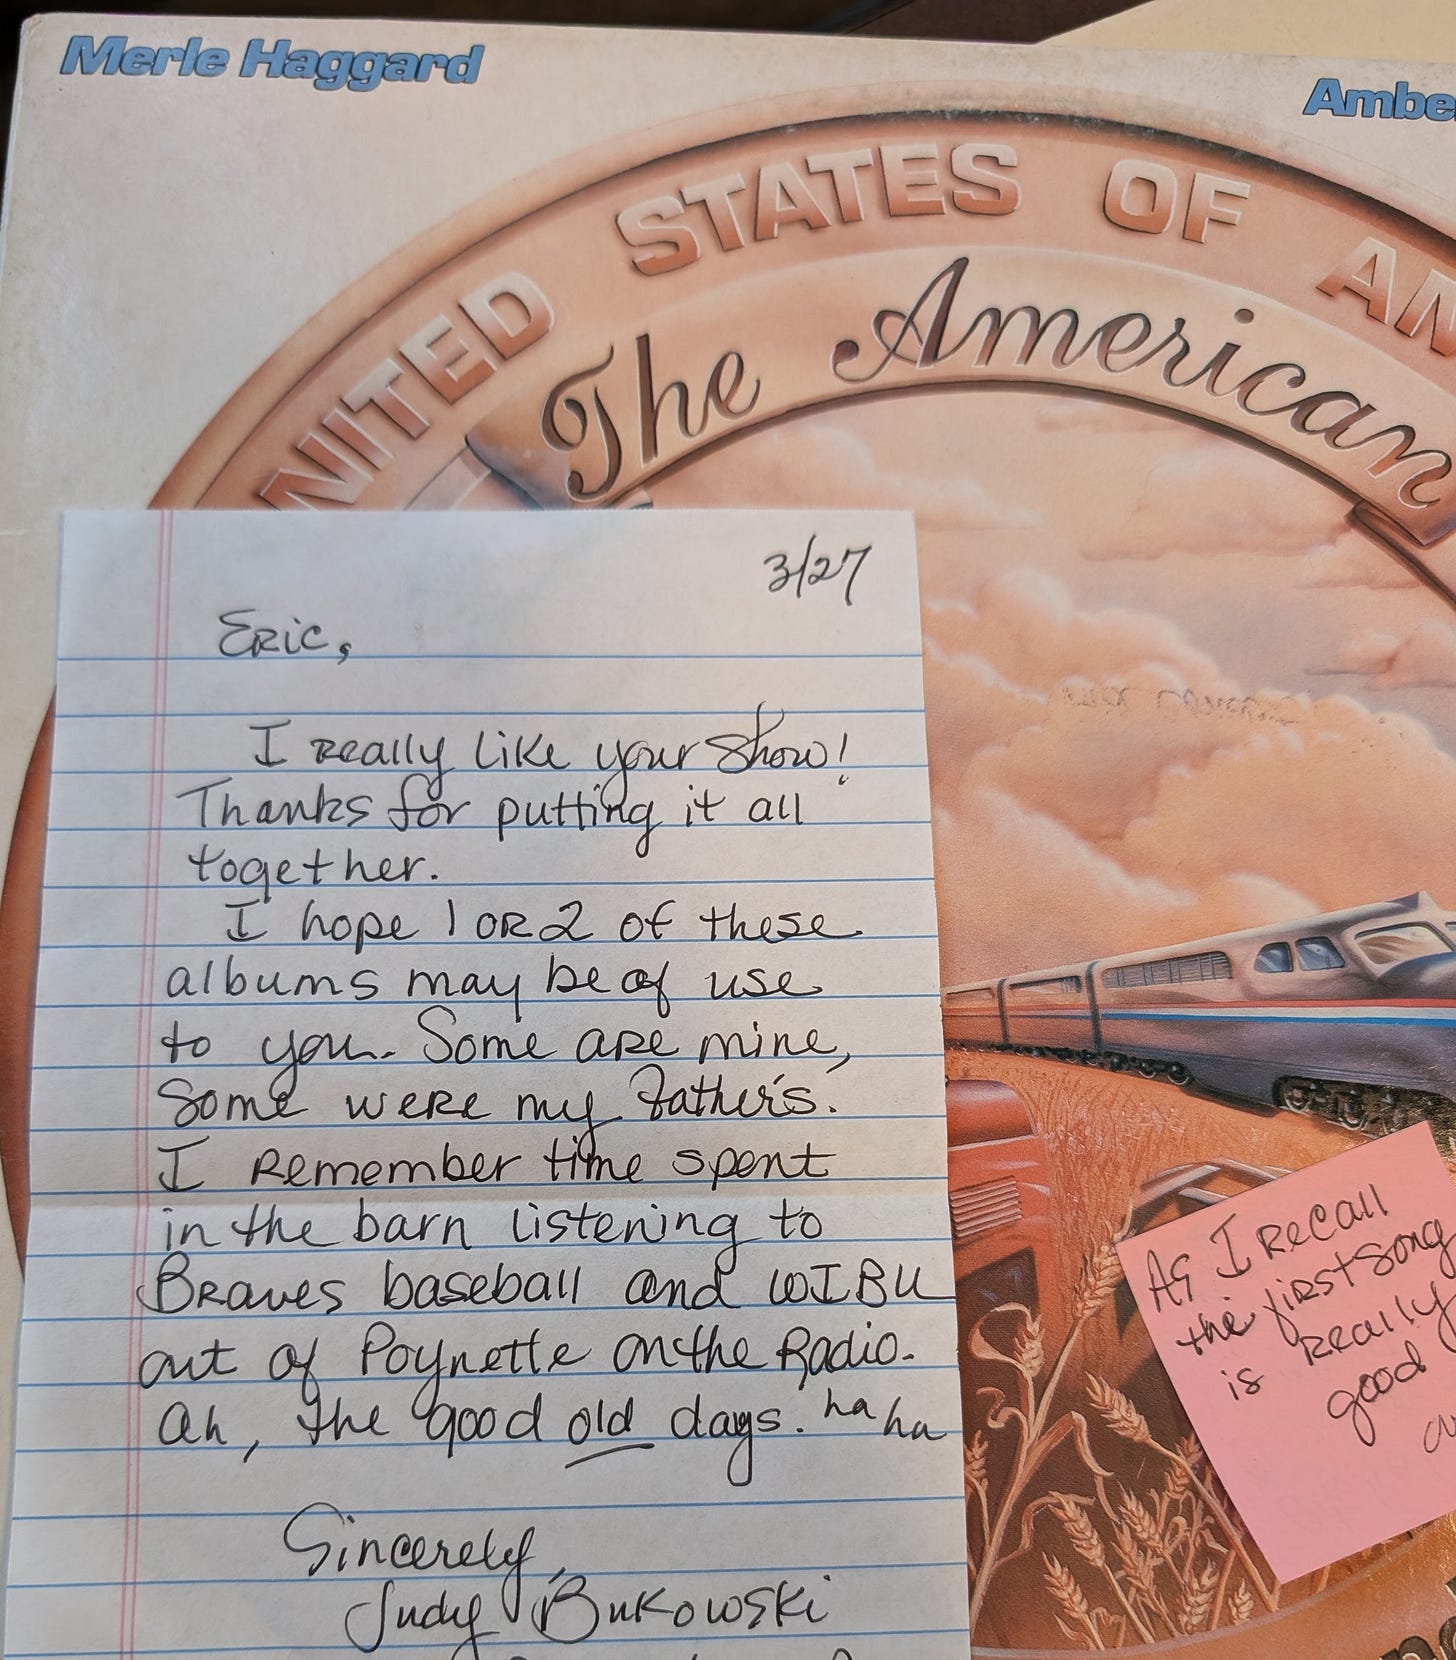 Merle Haggard
Ambe
UNITED STATES OF AM
The American
3/27
Eric,
I really like your show!
Thanks for putting it all
together.
I hope 1 or 2 of these
albums may be of use
to you. Some are mine,
Some were my father's.
I remember time spent
in the barn listening to
Braves baseball and WIBU
out of Poynette on the Radio.
Ah, the good old days. ha ha
Sincerely,
Judy Bukowski
As I recall
the first song
is really
good